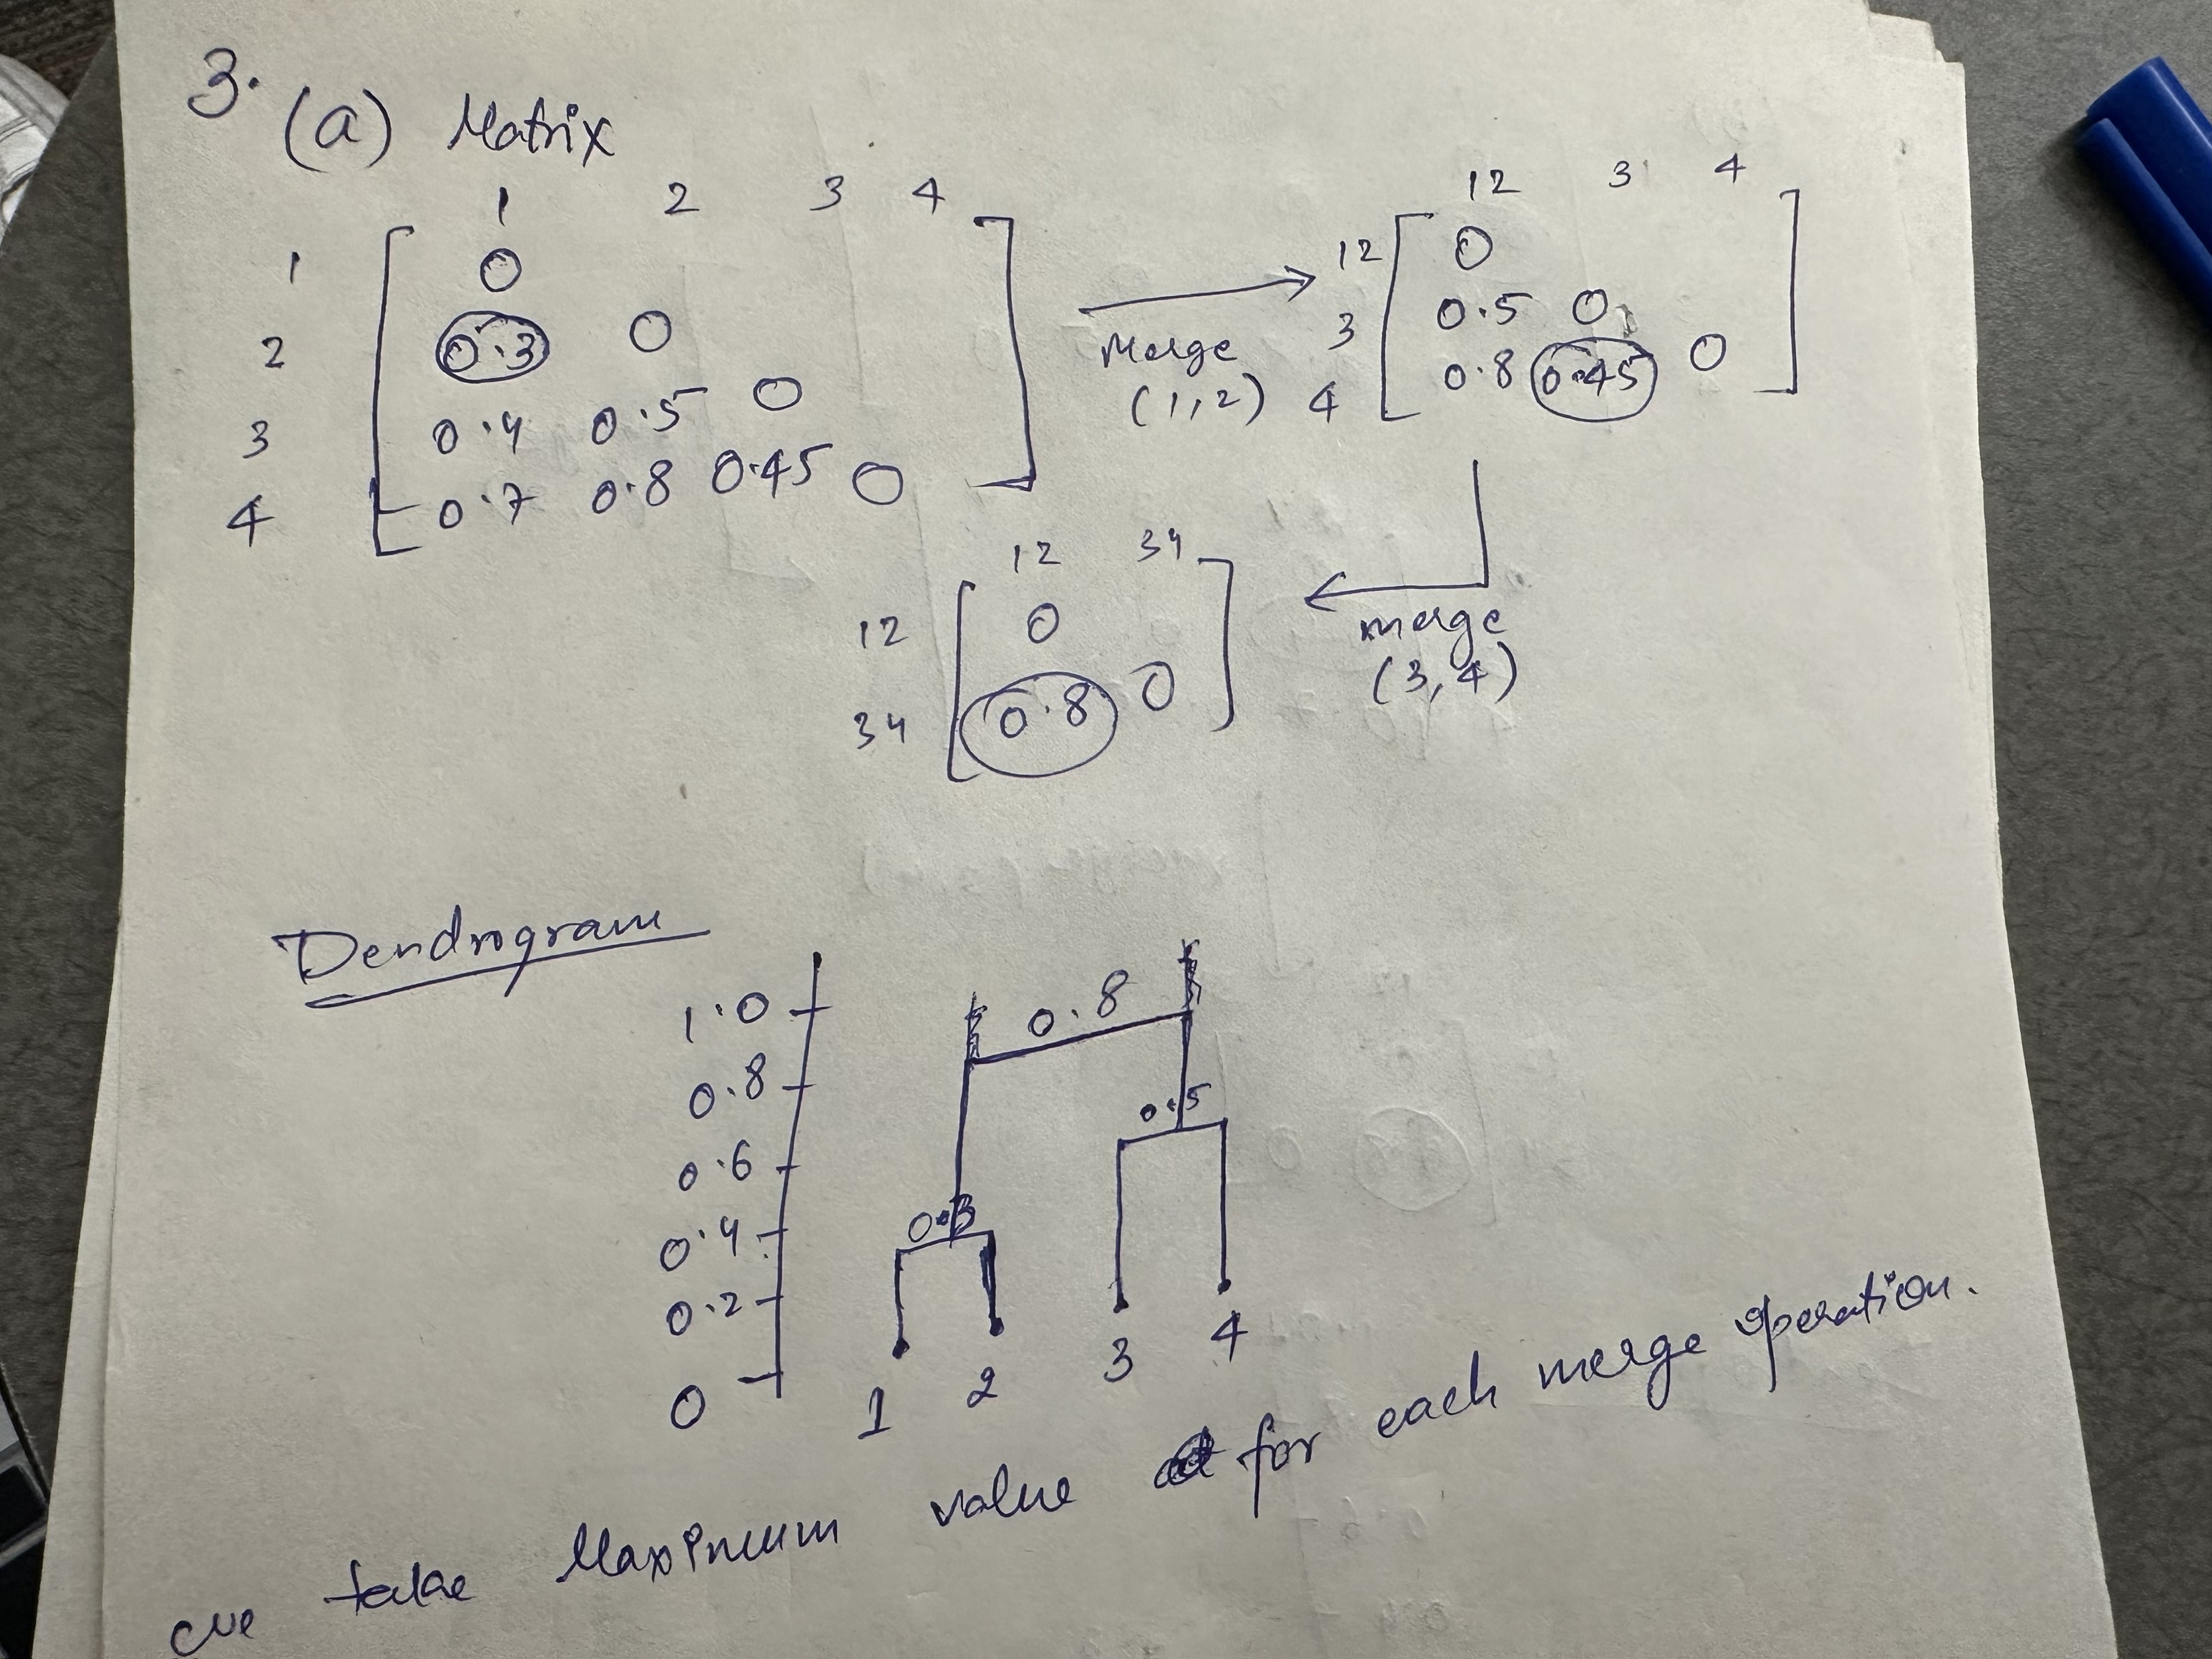 3. (a) Matrix
1 2 3 4
1 0
2 0.3 0
3 0.4 0.5 0
4 0.7 0.8 0.45 0
Merge
(1,2)
12 3 4
12 0
3 0.5 0
4 0.8 0.45 0
merge
(3,4)
12 34
12 0
34 0.8 0
Dendrogram
1.0
0.8
0.6
0.4
0.2
0
0.8
0.5
0.3
1 2 3 4
we take Maximum value for each merge operation.